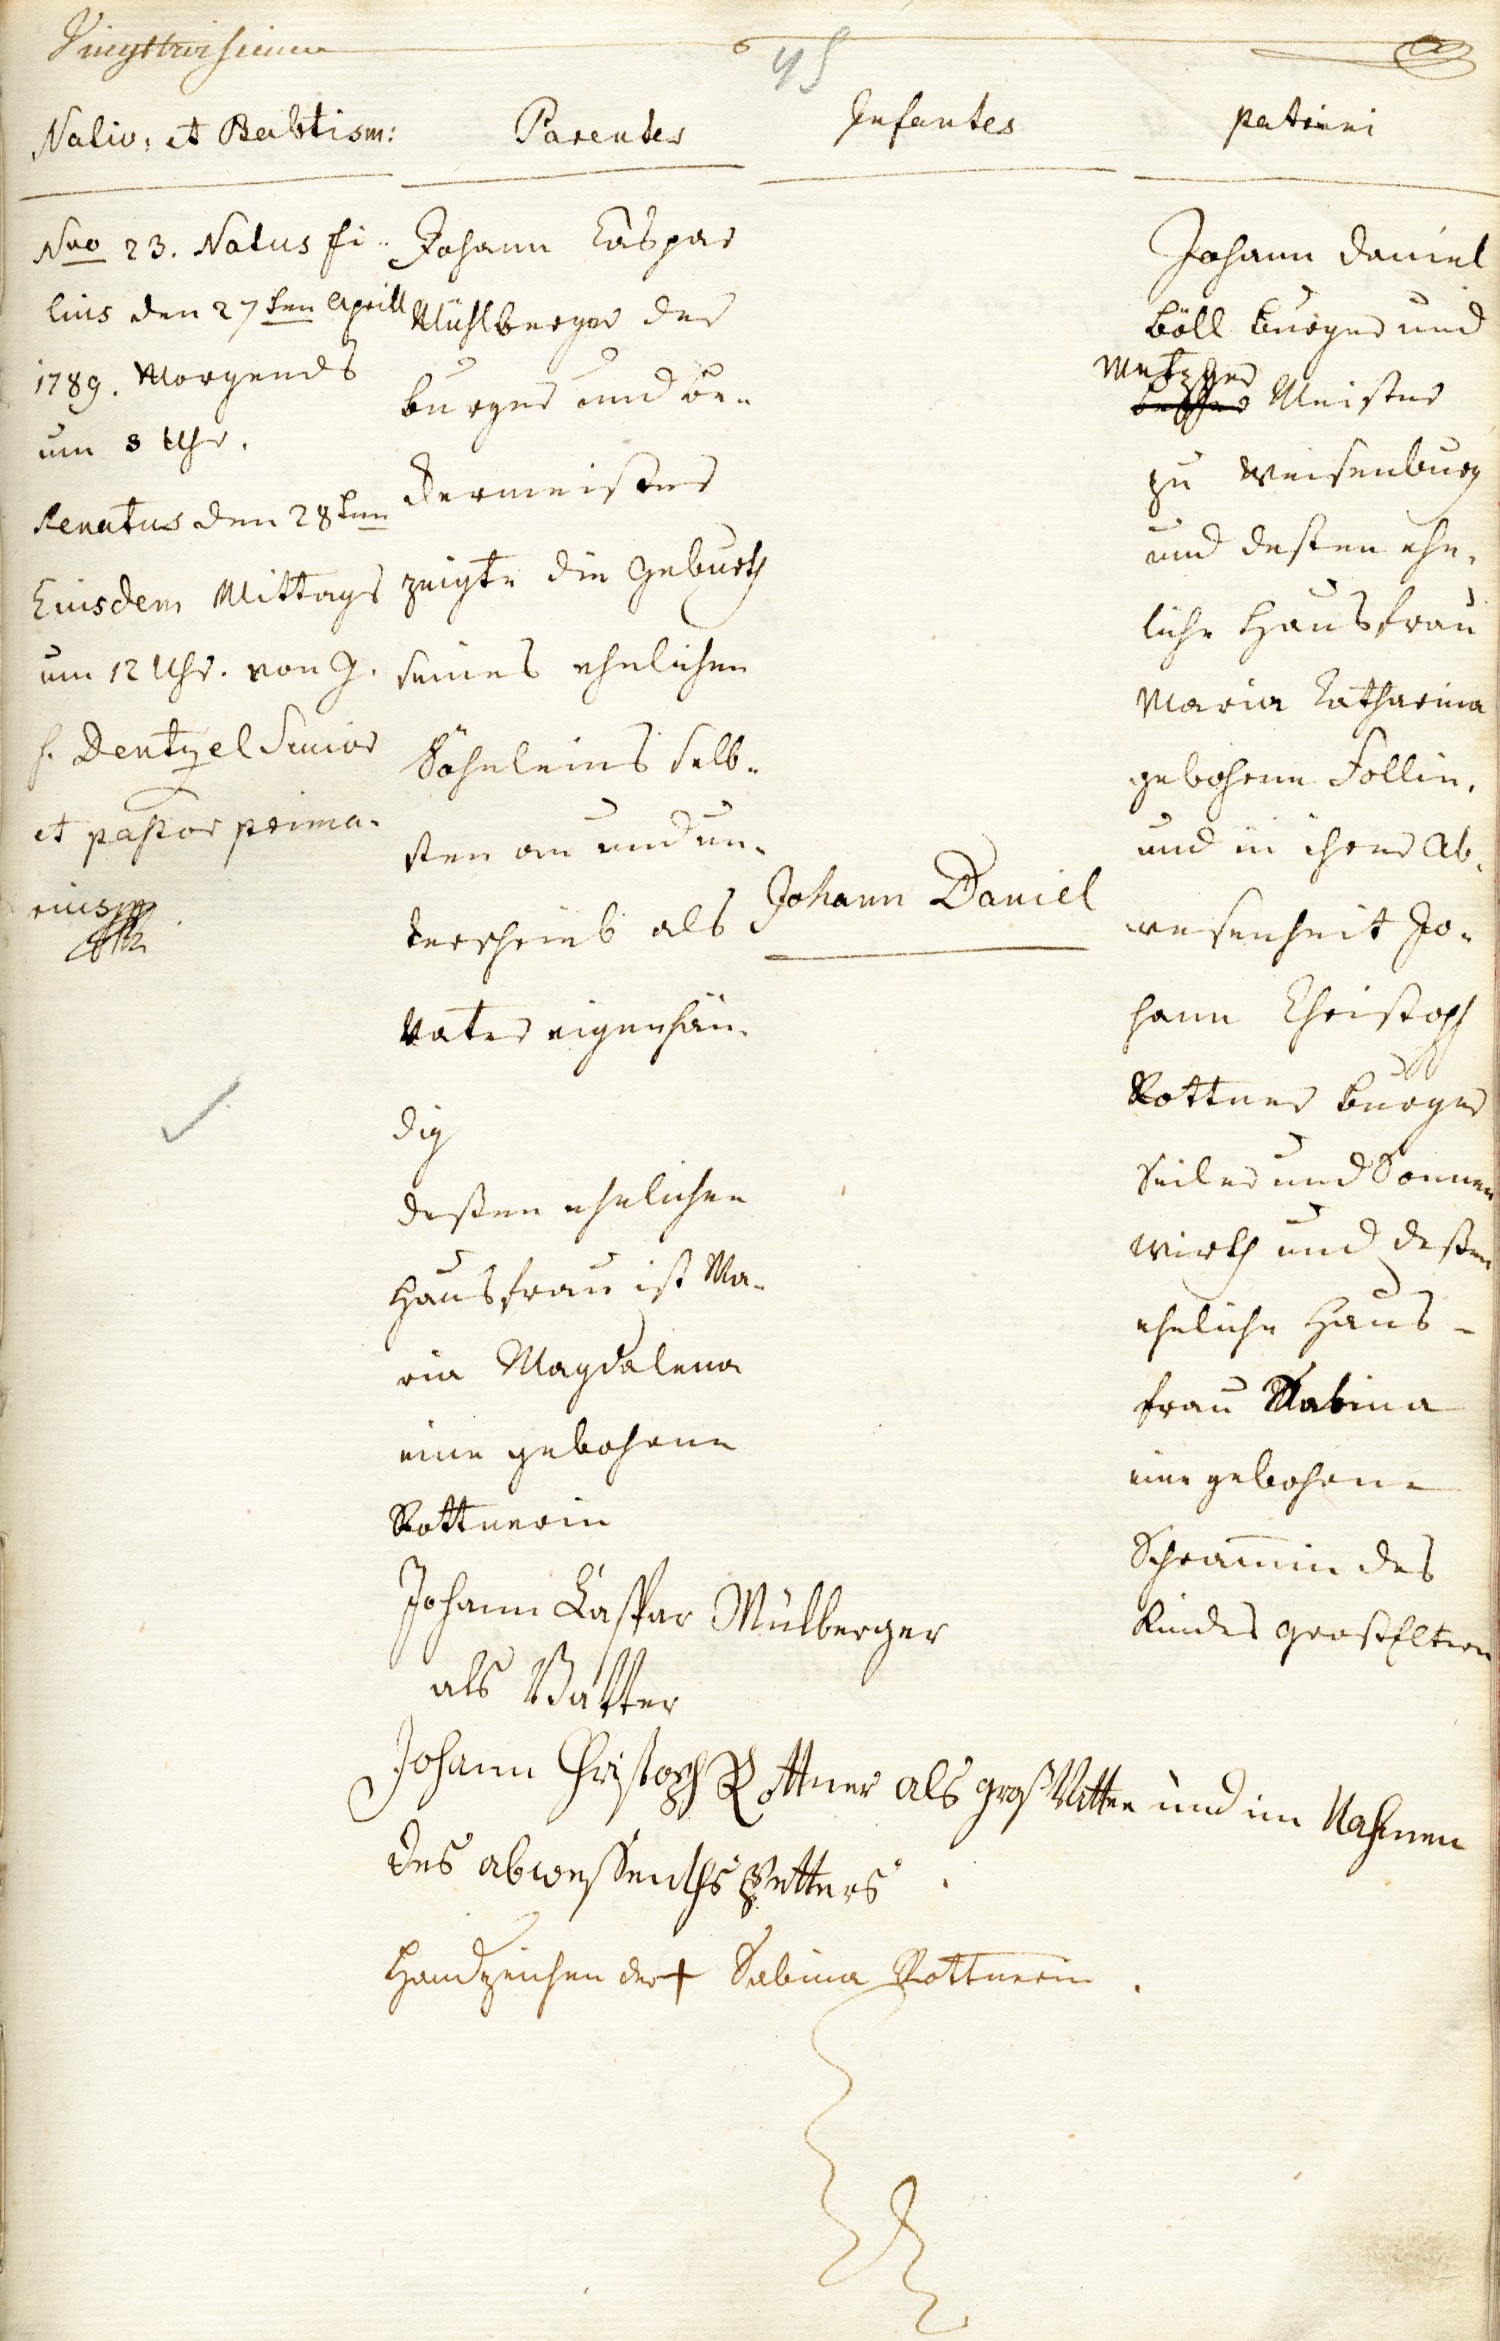 45
Nativ: et Babtism:
Parentes
Infantes
patrini
Nro 23. Natus fi-
lius den 27ten Aprill
1789. Morgends
um 8 Uhr.
Renatus den 28ten
Eiusdem Mittags
um 12 Uhr. von J.
f. Dentzel Senior
et pastor prima-
rius
Johann Caspar
Mühlberger der
burger und Be-
dermeister
zeigte die Geburth
seines ehelichen
Söhnleins selb-
sten an und un-
terschrieb als
Vater eigenhän-
dig
deßen ehelichen
Hausfrau ist Ma-
ria Magdalena
eine gebohrne
Rottnerin
Johann Daniel
Johann Daniel
Böll burger und
Metzger
Meister
zu Weisenburg
und deßen ehe-
liche Hausfrau
Maria Catharina
gebohrne Follin,
und in ihrer Ab-
wesenheit Jo-
hann Christoph
Rottner burger
Seiler und Sonnen
wirth und deßen
eheliche Haus-
frau Sabina
eine gebohrne
Schramin des
Kindes GroßEltern
Johann Casppar Mülberger
als Vatter
Johann Christoph Rottner als groß Vatter und im Nahmen
des abwessenths Petters
Handzeichen der + Sabina Rottnerin.